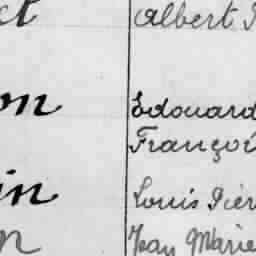 ct Albert
on Edouard
Françoi
in Louis Pier
n Jean Marie